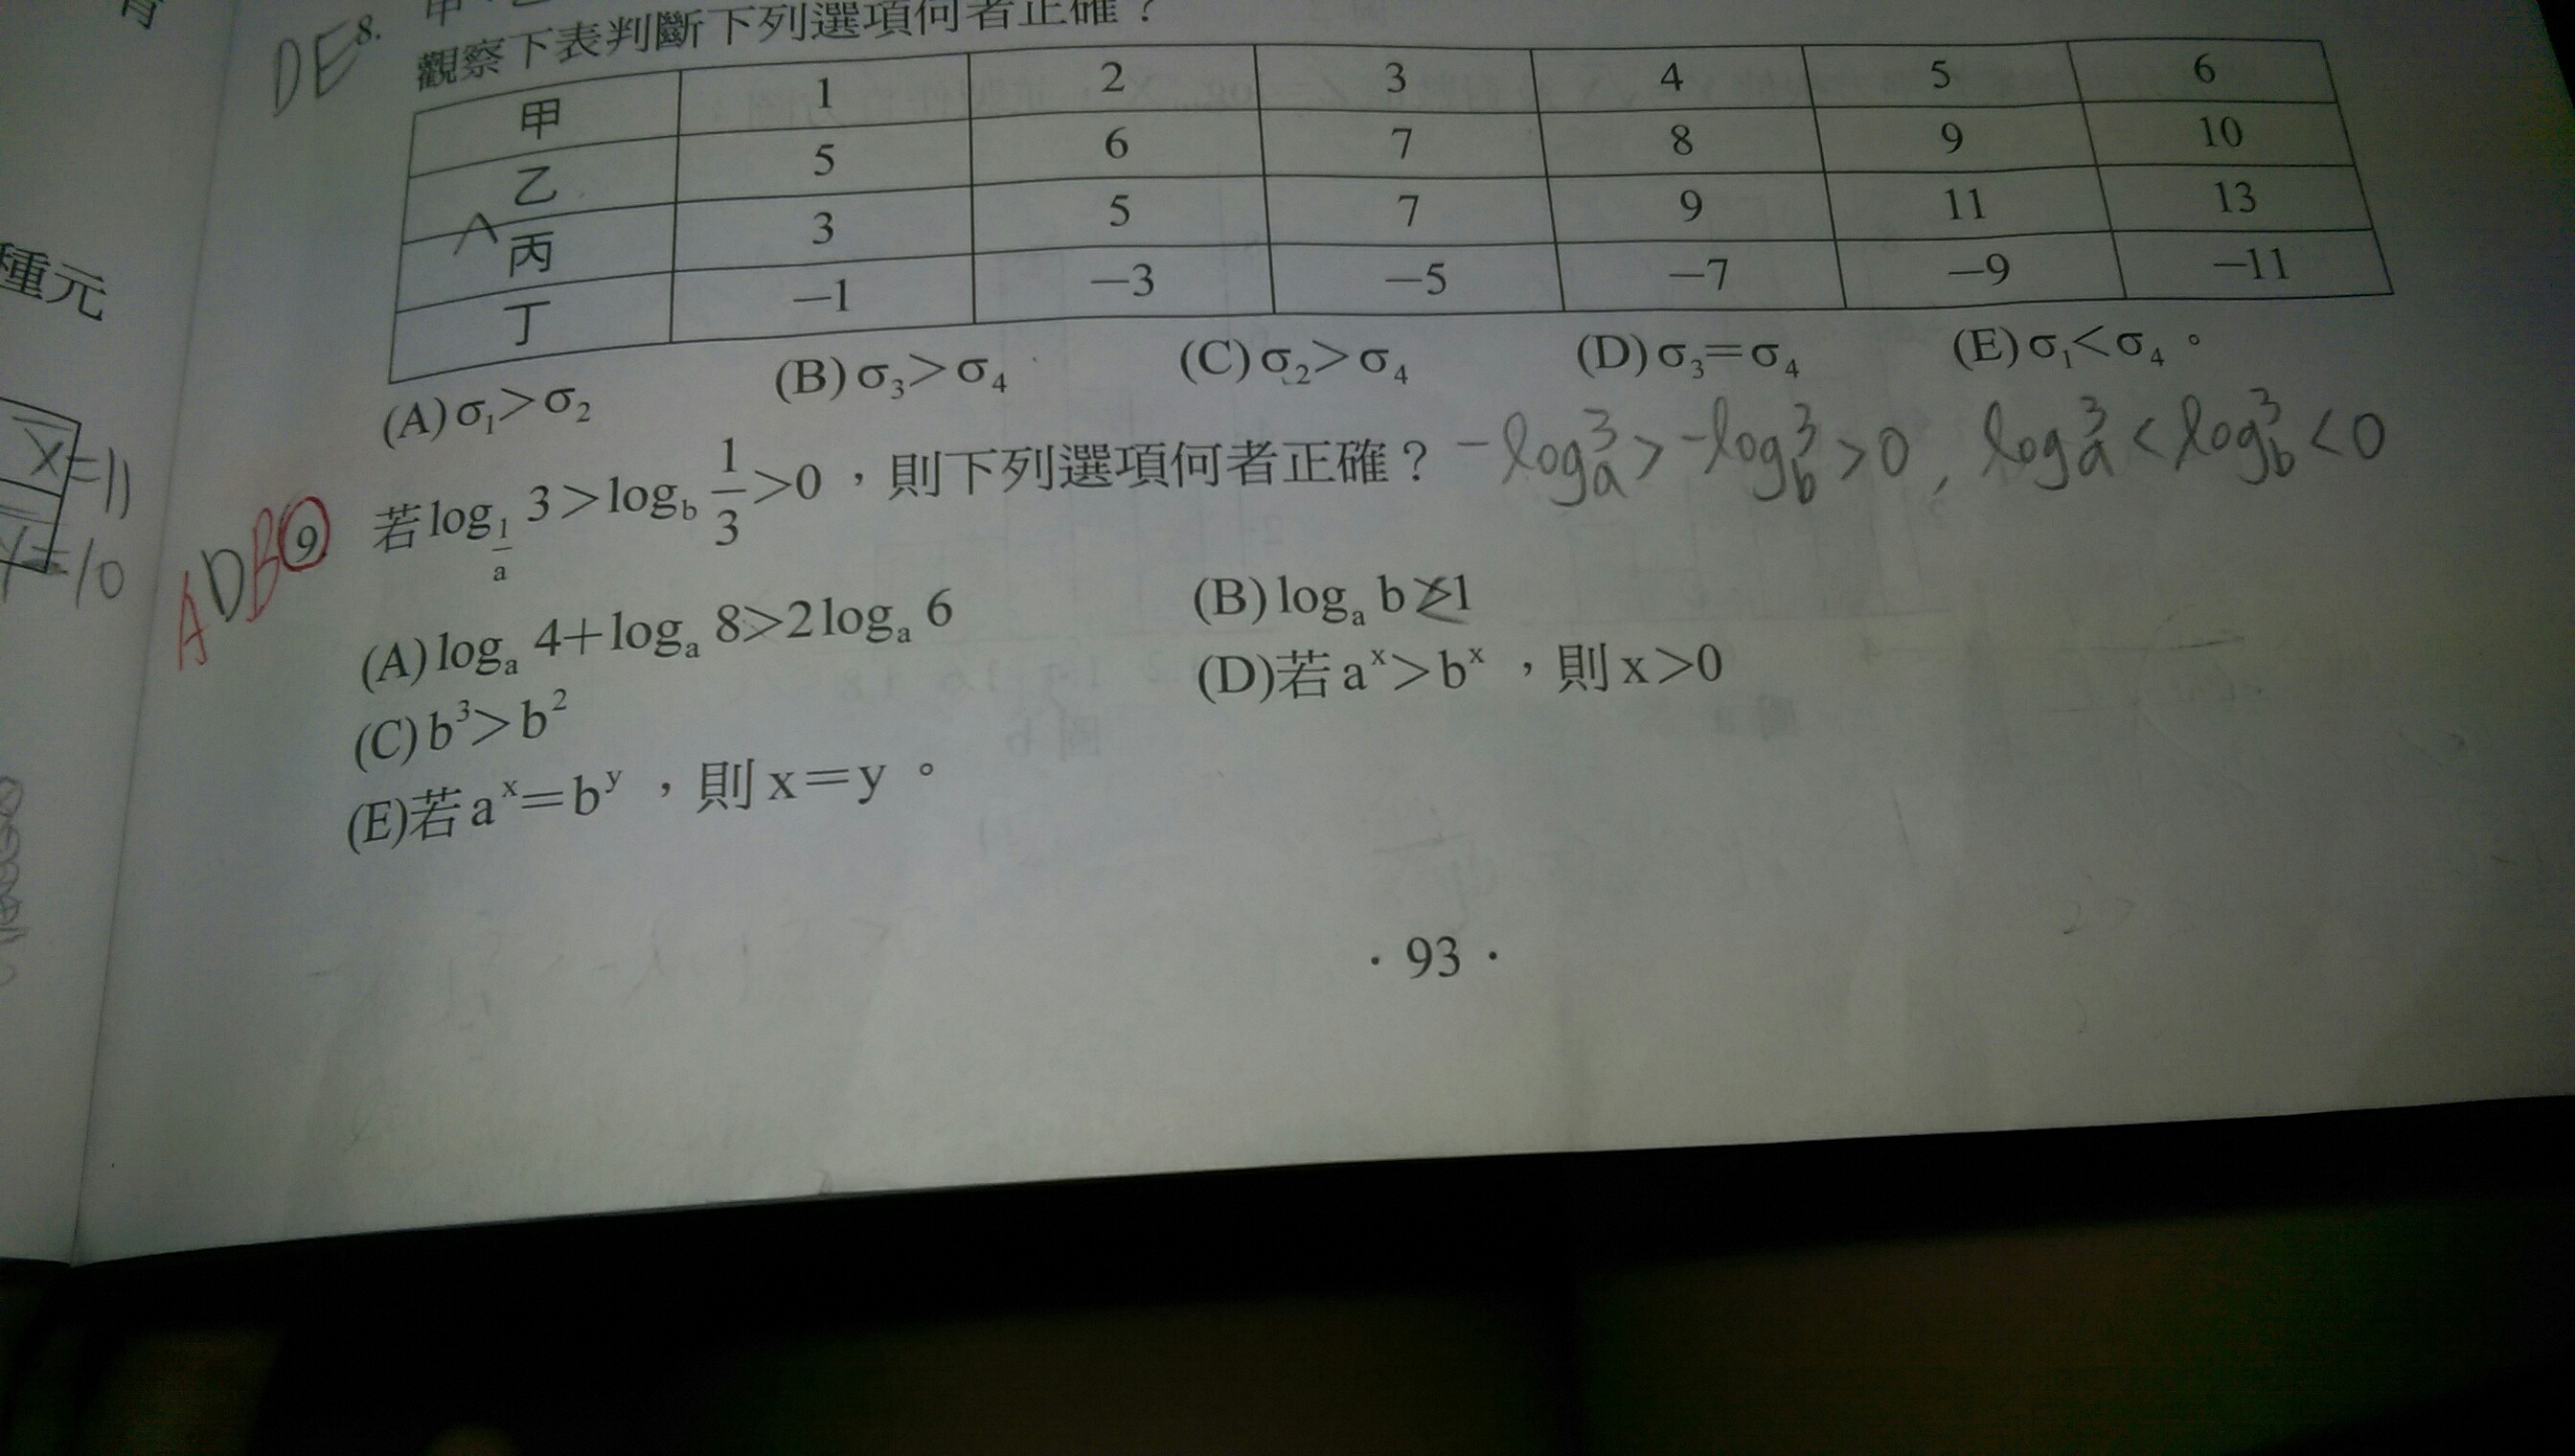 DE 8.
觀察下表判斷下列選項何者正確？
甲 1 2 3 4 5 6
乙 5 6 7 8 9 10
丙 3 5 7 9 11 13
丁 −1 −3 −5 −7 −9 −11
(A) σ₁＞σ₂ (B) σ₃＞σ₄ (C) σ₂＞σ₄ (D) σ₃＝σ₄ (E) σ₁＜σ₄。
種元
X=11
Y=10
ADB 9 若 log_{1/a} 3＞log_b 1/3＞0，則下列選項何者正確？ -log_a 3 > -log_b 3 > 0, log_a 3 < log_b 3 < 0
(A) logₐ 4＋logₐ 8＞2 logₐ 6 (B) logₐ b≥1
(C) b³＞b² (D)若 aˣ＞bˣ，則 x＞0
(E)若 aˣ＝bʸ，則 x＝y。
· 93 ·